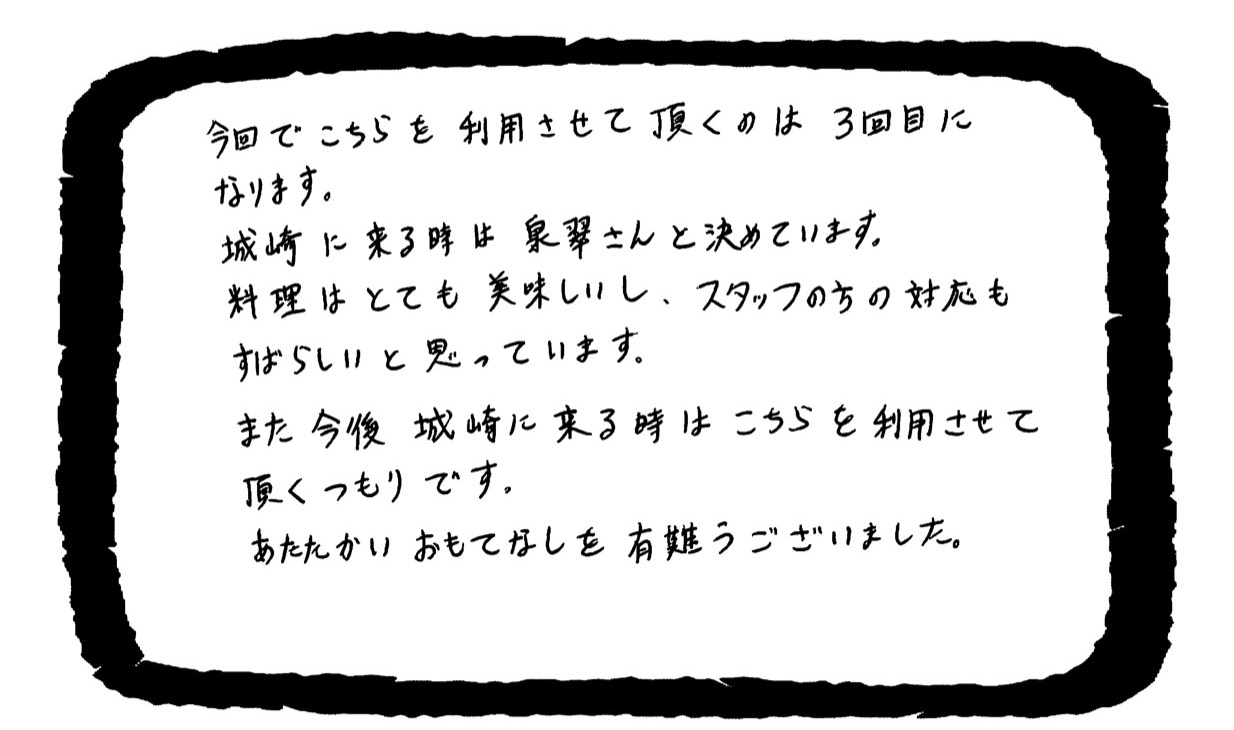 今回でこちらを利用させて頂くのは3回目に
なります。
城崎に来る時は泉翠さんと決めています。
料理はとても美味しいし、スタッフの方の対応も
すばらしいと思っています。
また今後城崎に来る時はこちらを利用させて
頂くつもりです。
あたたかいおもてなしを有難うございました。